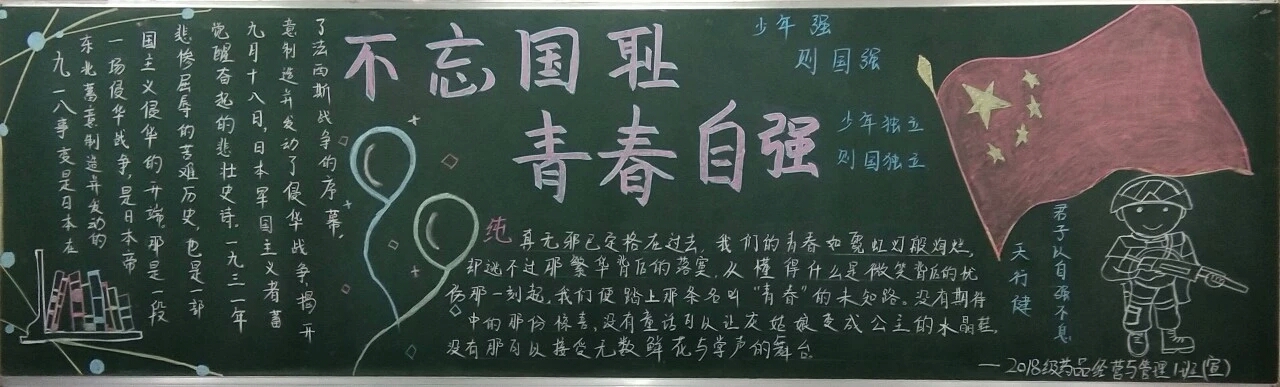 不忘国耻
青春自强
少年强
则国强
少年独立
则国独立
九一八事变是日本在
东北蓄意制造并发动的
一场侵华战争,是日本帝
国主义侵华的开端。那是一段
悲惨屈辱的苦难历史,也是一部
觉醒奋起的悲壮史诗。一九三一年
九月十八日,日本军国主义者蓄
意制造并发动了侵华战争,揭开
了法西斯战争的序幕。
纯真无邪已定格在过去,我们的青春如霓虹灯般绚烂,
却逃不过那繁华背后的落寞。从懂得什么是微笑背后的忧
伤那一刻起,我们便踏上那条名叫“青春”的未知路。没有期待
中的那份惊喜,没有童话可以让灰姑娘变成公主的水晶鞋,
没有那可以接受无数鲜花与掌声的舞台。
天行健
君子以自强不息
——2018级药品经营与管理1班(宣)